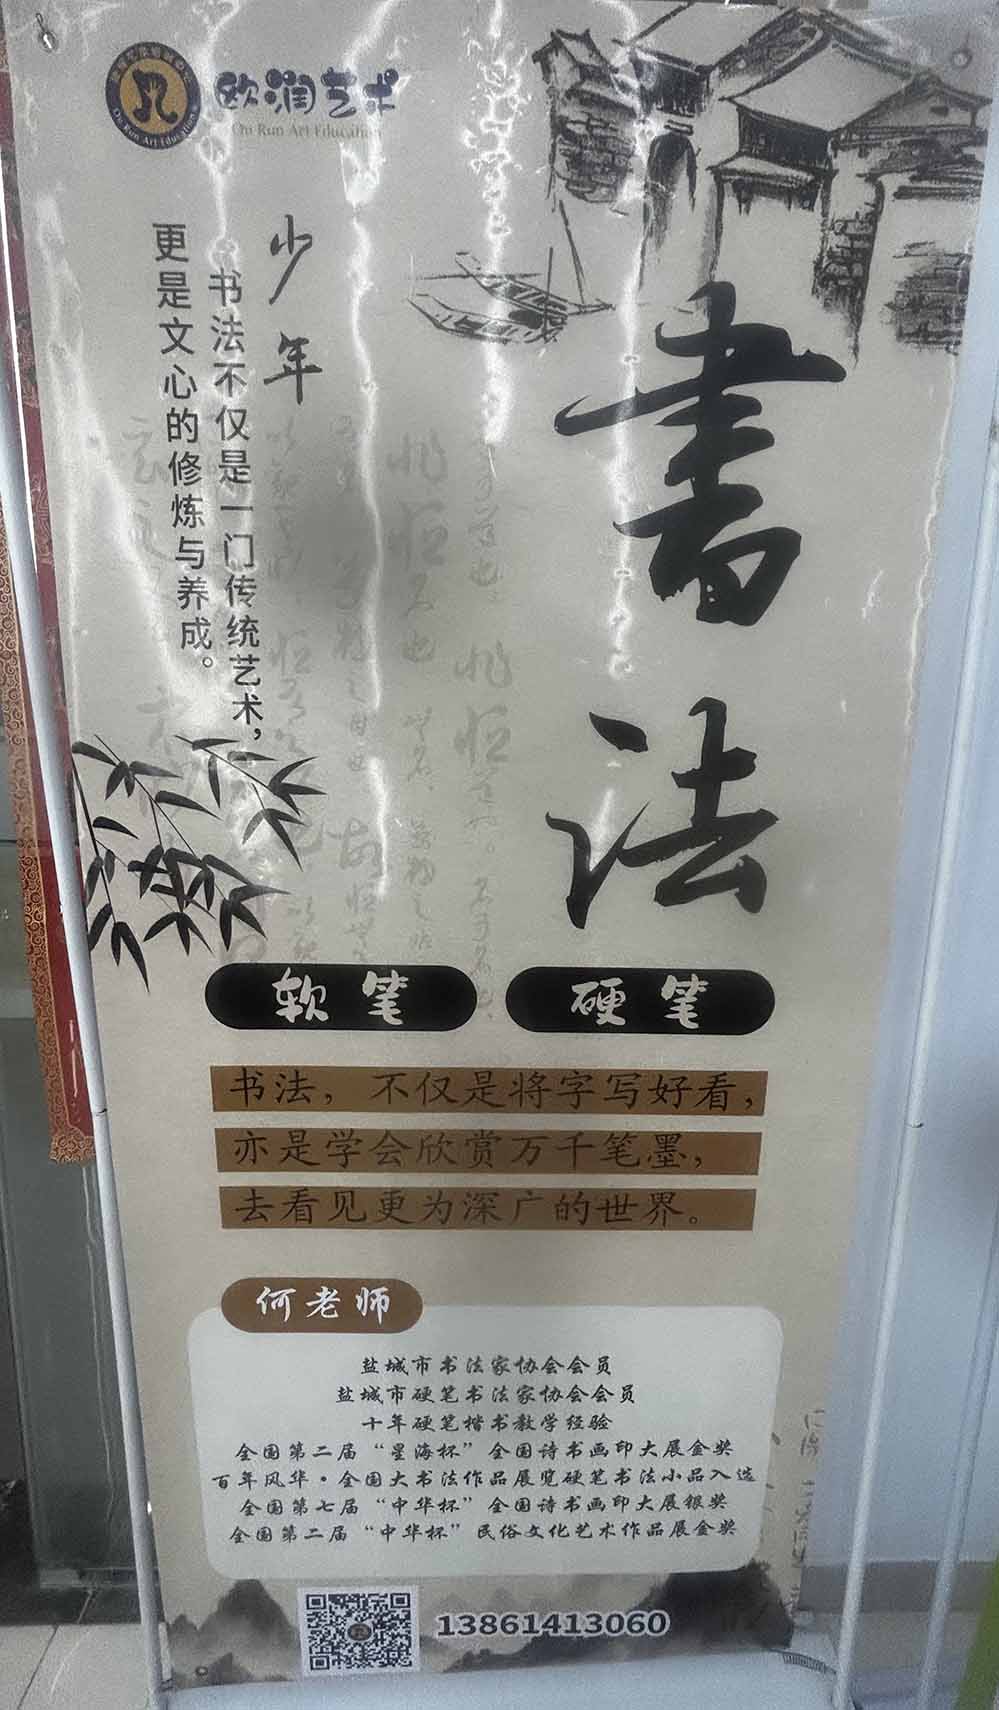 欧润艺术
Ou Run Art Education
Ou Run Art Education
書法
少年
书法不仅是一门传统艺术,
更是文心的修炼与养成。
软笔
硬笔
书法，不仅是将字写好看，
亦是学会欣赏万千笔墨，
去看见更为深广的世界。
何老师
盐城市书法家协会会员
盐城市硬笔书法家协会会员
十年硬笔楷书教学经验
全国第二届“星海杯”全国诗书画印大展金奖
百年风华·全国大书法作品展览硬笔书法小品入选
全国第七届“中华杯”全国诗书画印大展银奖
全国第二届“中华杯”民俗文化艺术作品展金奖
13861413060